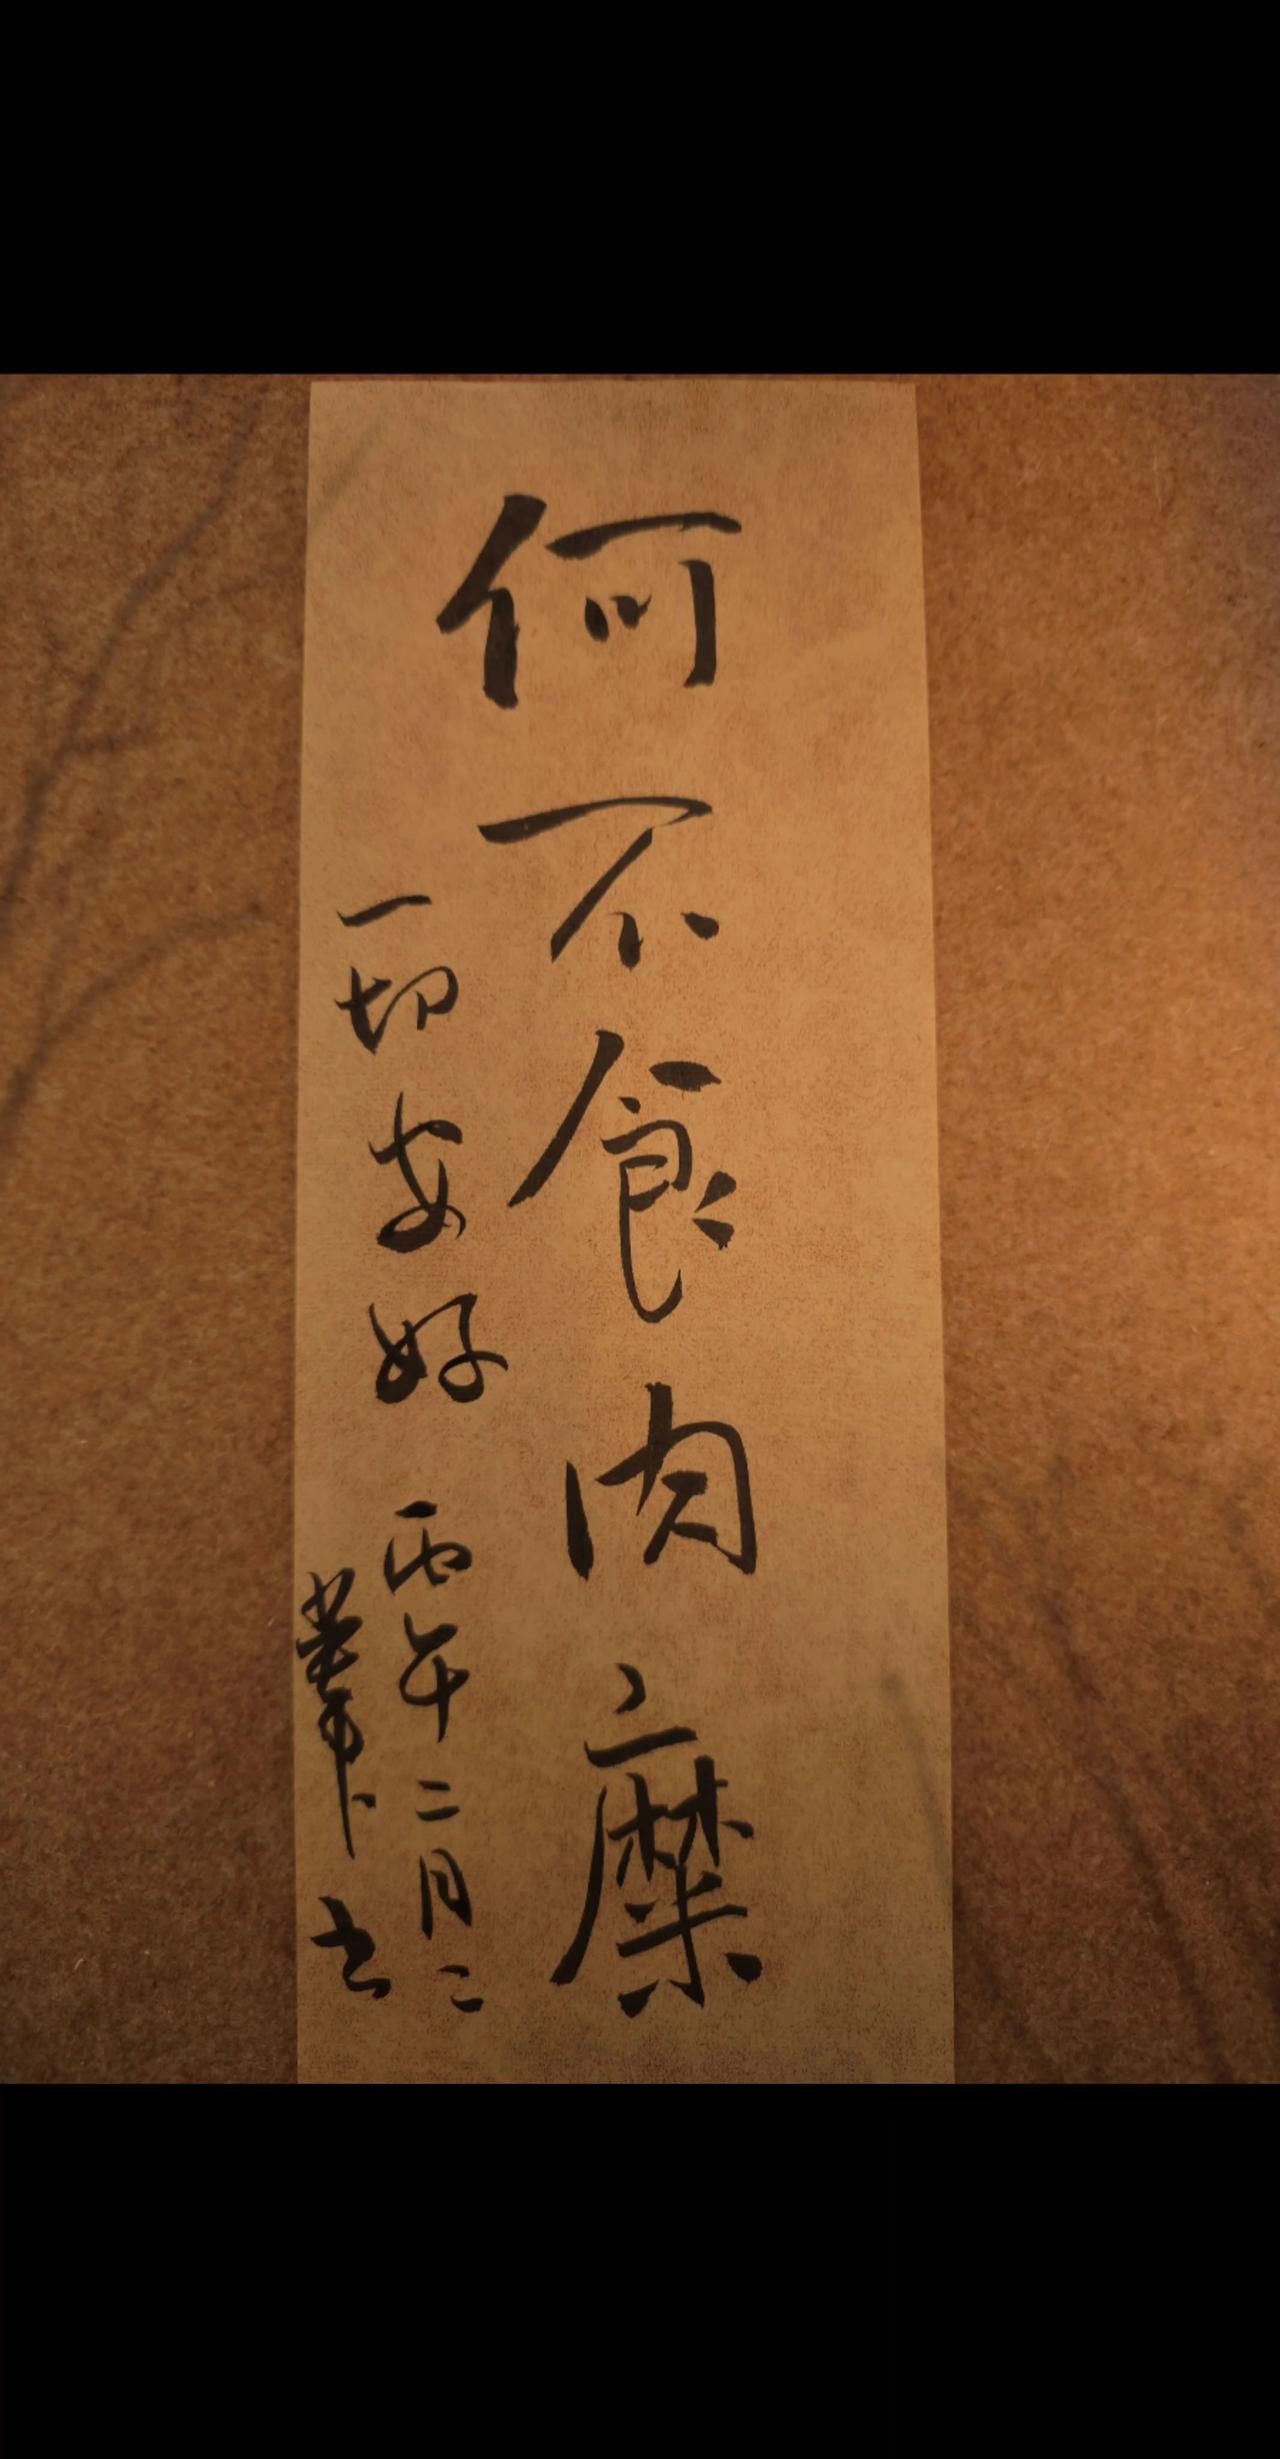 何不食肉糜
一切安好 丙午二月二
书